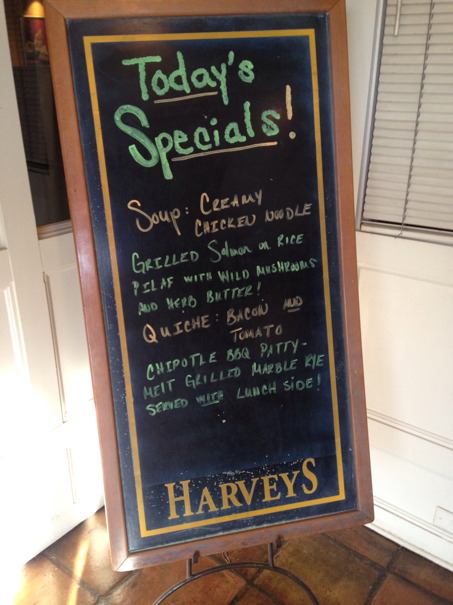 Today's
Specials!
Soup: Creamy
Chicken Noodle
Grilled Salmon on Rice
Pilaf with Wild Mushrooms
and Herb Butter!
Quiche: Bacon and
Tomato
Chipotle BBQ Patty-
Melt Grilled Marble Rye
Served with Lunch Side!
HARVEYS